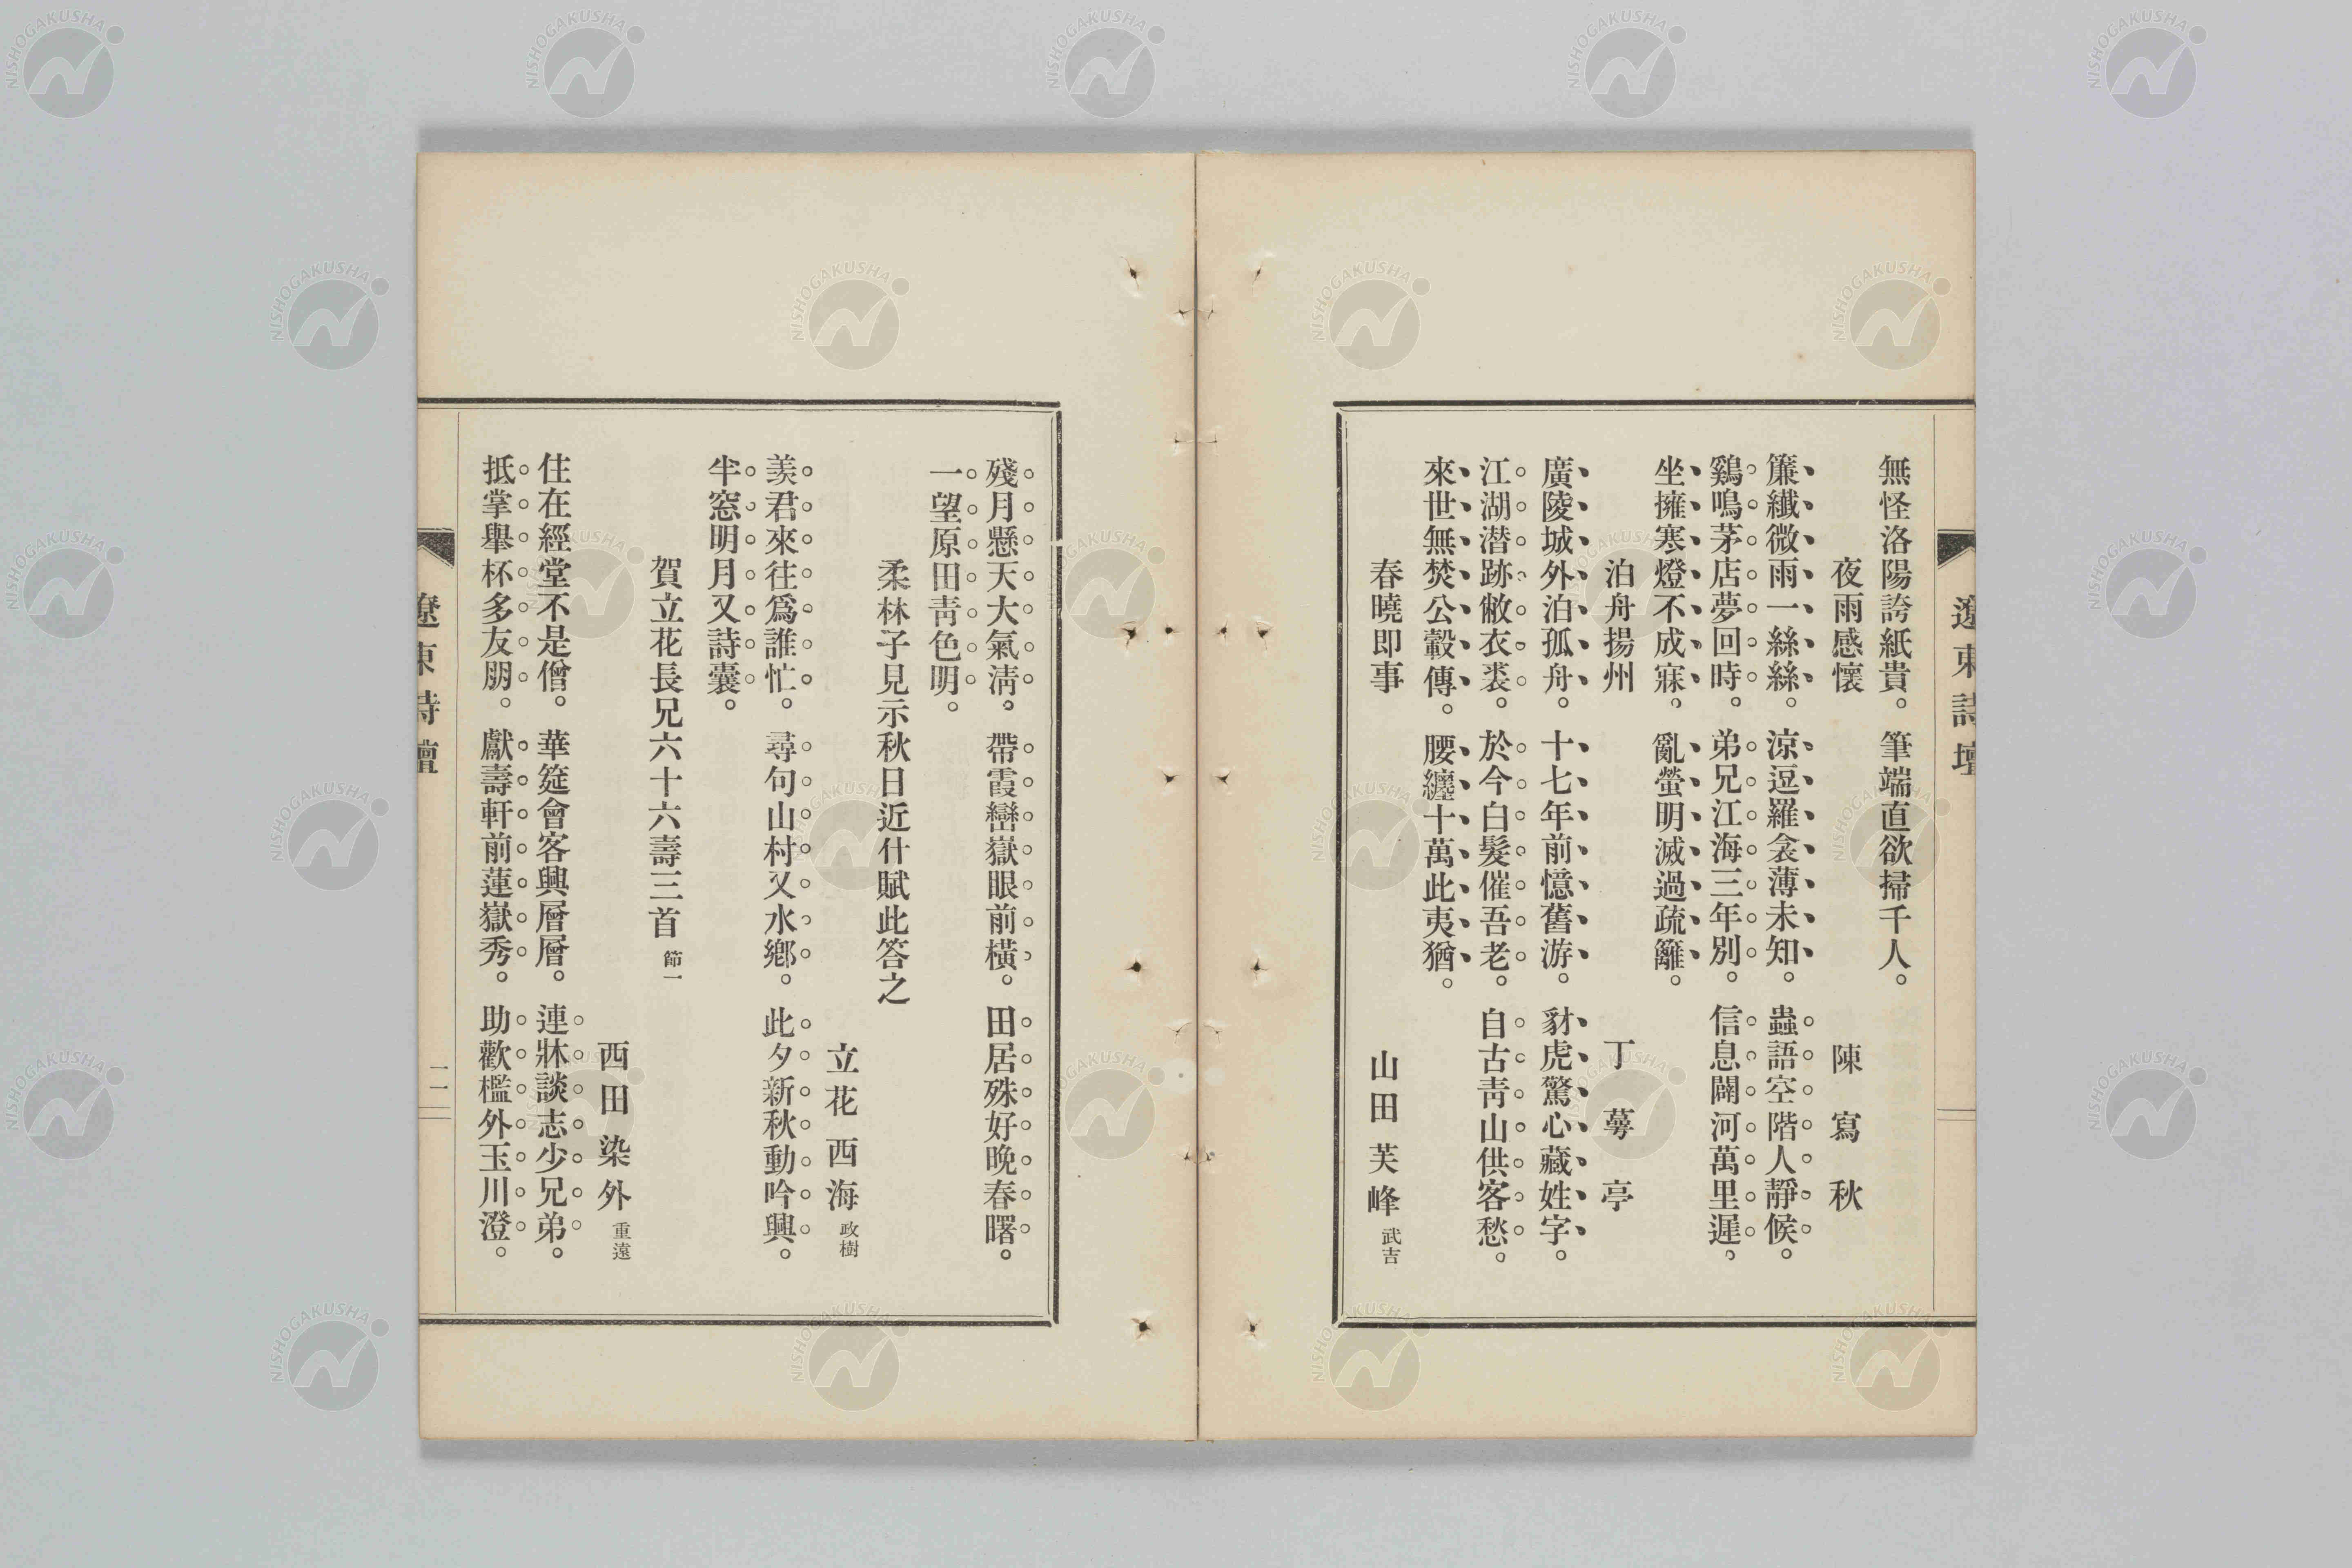 無怪洛陽誇紙貴。筆端直欲掃千人。
夜雨感懷　陳寫秋
簾纖微雨一絲絲。涼逗羅衾薄未知。蟲語空階人靜候。
鷄鳴茅店夢回時。弟兄江海三年別。信息關河萬里遲。
坐擁寒燈不成寐。亂螢明滅過疏籬。
泊舟揚州　丁蕚亭
廣陵城外泊孤舟。十七年前憶舊游。豺虎驚心藏姓字。
江湖潛跡敝衣裘。於今白髮催吾老。自古靑山供客愁。
來世無焚公轂傳。腰纏十萬此夷猶。
春曉即事　山田芙峰 武吉
殘月懸天大氣淸。帶霞巒嶽眼前橫。田居殊好晩春曙。
一望原田靑色明。
柔林子見示秋日近什賦此答之
立花西海 政樹
羨君來往爲誰忙。尋句山村又水鄕。此夕新秋動吟興。
半窓明月又詩囊。
賀立花長兄六十六壽三首 節一
西田染外 重遠
住在經堂不是僧。華筵會客興層層。連牀談志少兄弟。
抵掌擧杯多友朋。獻壽軒前蓮嶽秀。助歡檻外玉川澄。
遼東詩壇
二一
遼東詩壇
NISHOGAKUSHA